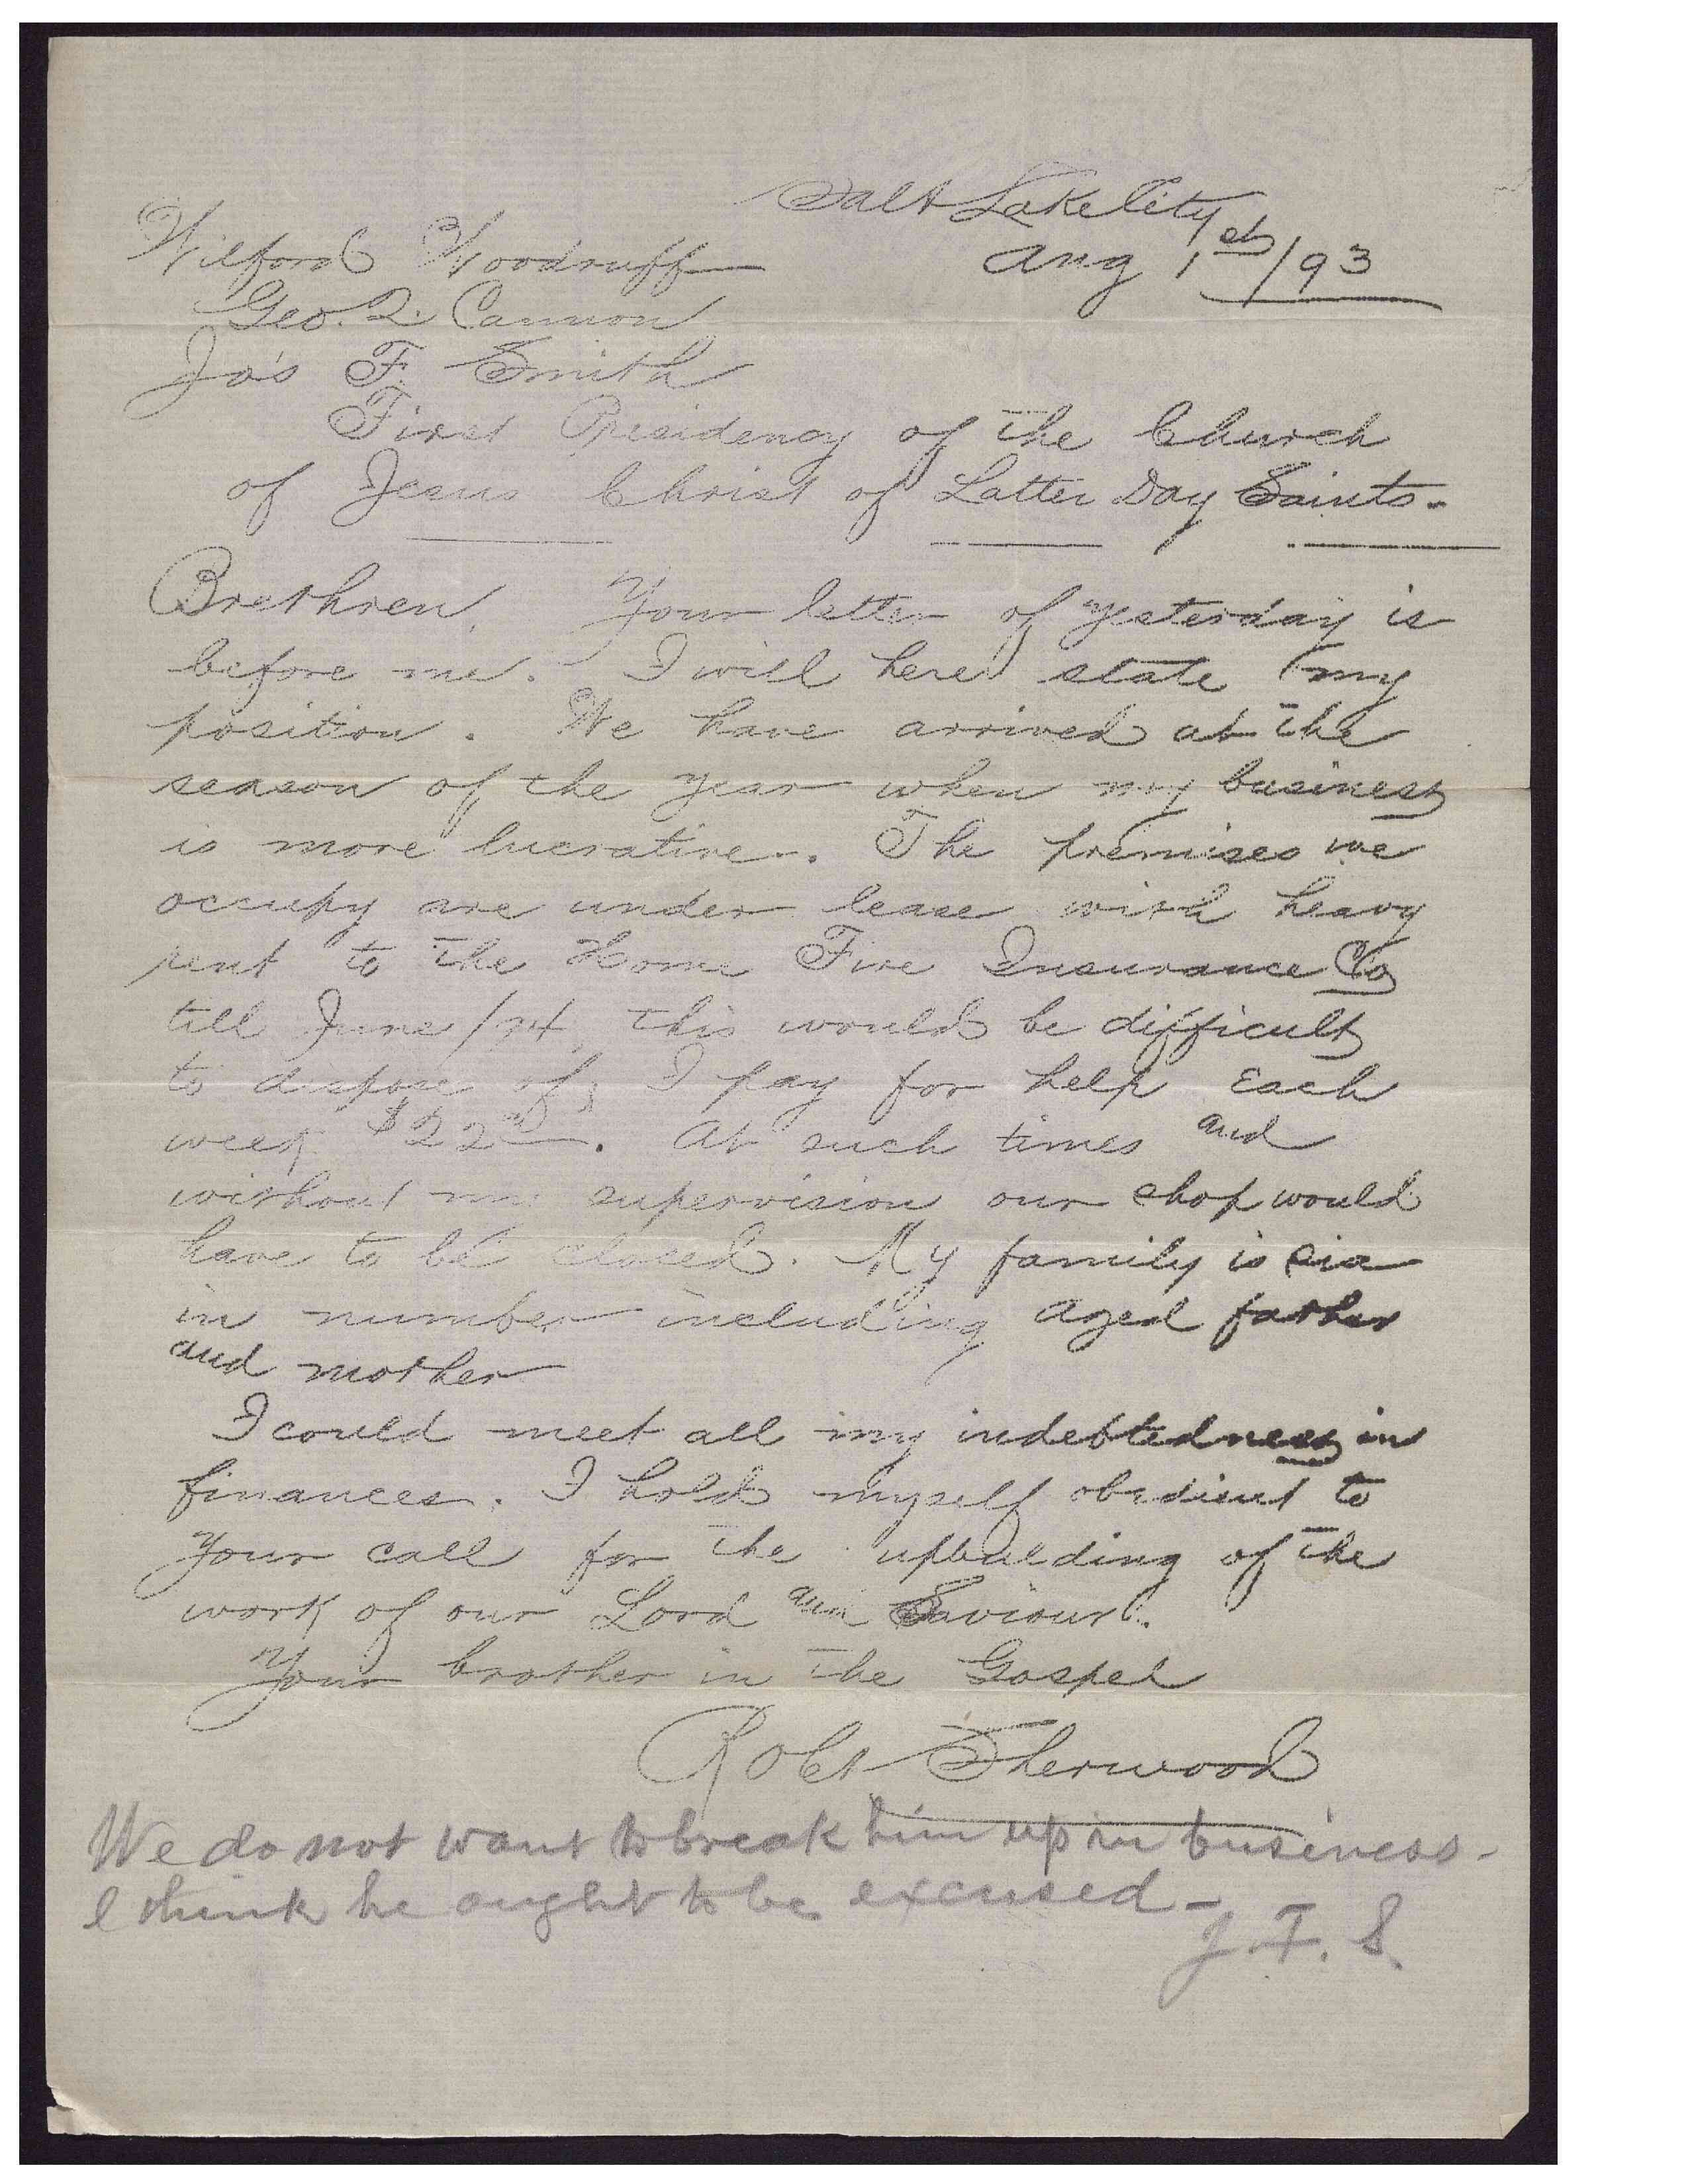 Salt Lake City
Aug 1st/93
Wilford Woodruff
Geo. Q. Cannon
Jos F. Smith
First Presidency of the Church
of Jesus Christ of Latter Day Saints.
Brethren, Your letter of yesterday is
before me. I will here state my
position. We have arrived at the
season of the year when my business
is more lucrative. The premises we
occupy are under lease with heavy
rent to the Home Fire Insurance Co
till June/94, this would be difficult
to dispose of, I pay for help Each
week $22.00. At such times and
without my supervision our shop would
have to be closed. My family is six
in number including aged father
and mother
I could meet all my indebtedness in
finances. I hold myself obedient to
your call for the upbuilding of the
work of our Lord and Saviour.
Your brother in the Gospel
Robt Sherwood
We do not want to break him up in business-
I think he ought to be excused-
J. F. S.